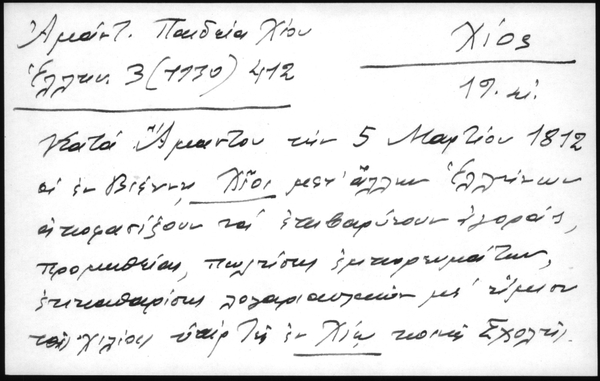 Ἀμάντ. Παιδεία Χίου
Χίος
Ἑλλην. 3 (1930) 412
19. αἰ.
Κατὰ Ἄμαντον τὴν 5 Μαρτίου 1812
οἱ ἐν Βιέννῃ Χῖοι μετ' ἄλλων Ἑλλήνων
ἀποφασίζουν νὰ ἐπιβαρύνουν ἀγοράς,
προμηθείας, πωλήσεις ἐμπορευμάτων,
ἐπικαθαρίσεις λογαριασμῶν μὲ ἥμισυ
τοῖς χιλίοις ὑπὲρ τῆς ἐν Χίῳ κοινῆς Σχολῆς.